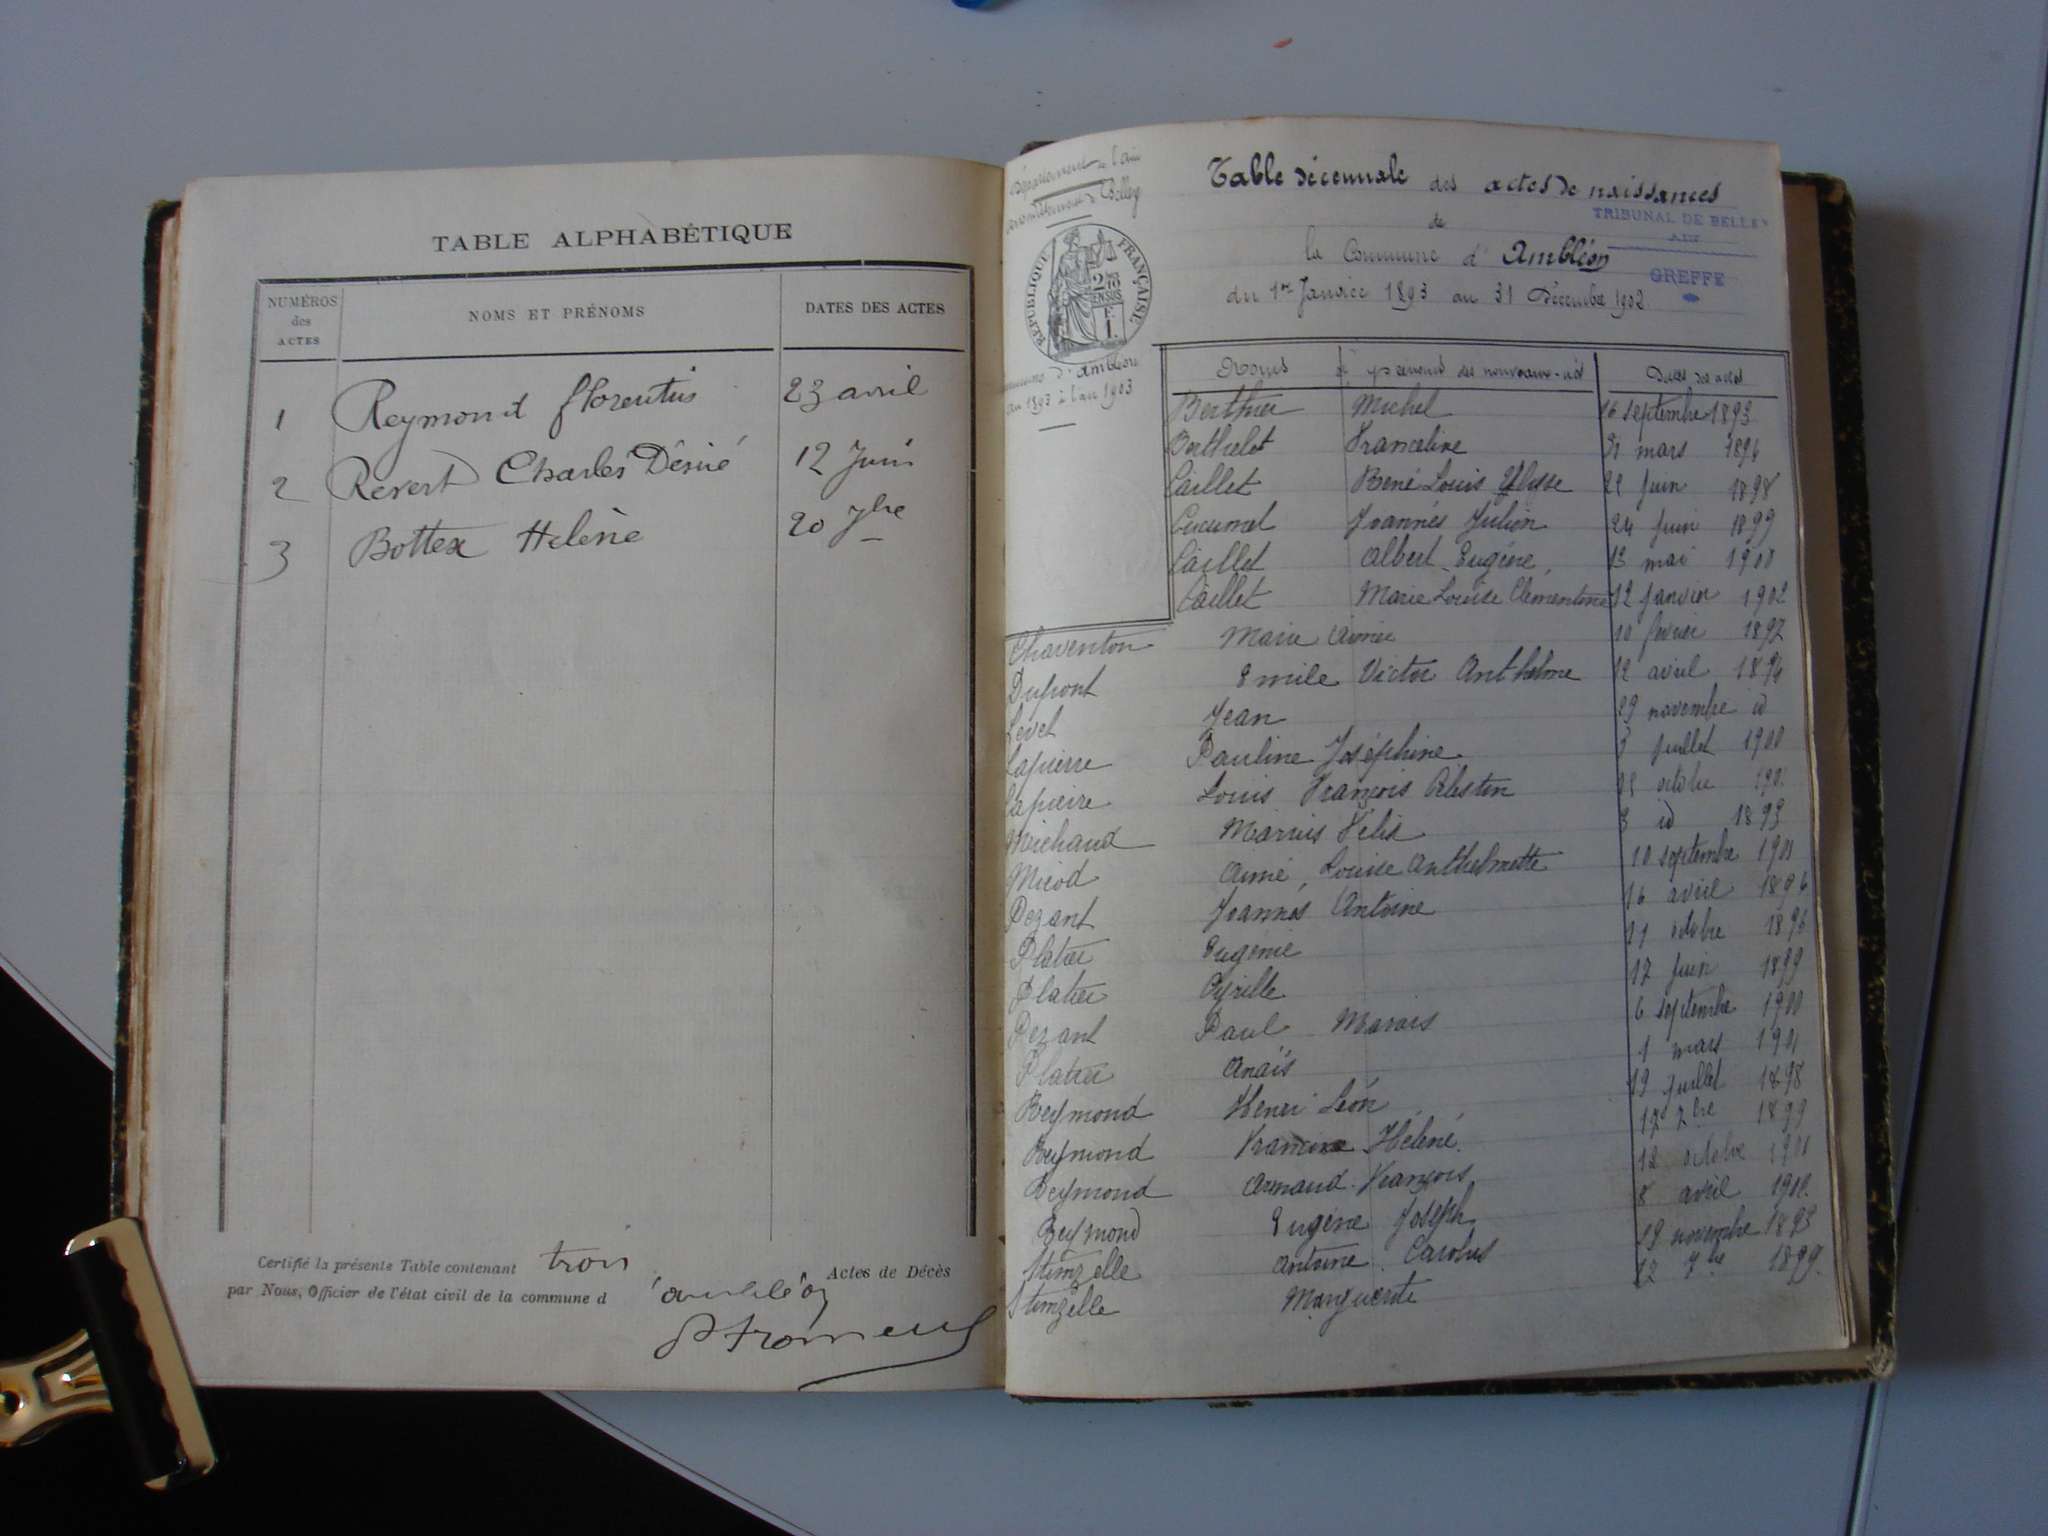 TABLE ALPHABÉTIQUE
NUMÉROS des ACTES NOMS ET PRÉNOMS DATES DES ACTES
1 Reymond florentin 23 avril
2 Revert Charles Désiré 12 Juin
3 Bottex Helène 20 7bre
Certifié la présente Table contenant trois Actes de Décès
par Nous, Officier de l'état civil de la commune d'ambléon
Département de l'ain
arrondissement de Belley
RÉPUBLIQUE FRANÇAISE
commune d'Ambléon
an 1893 à l'an 1903
Table décennale des actes de naissances
TRIBUNAL DE BELLEY
AIN
de
la Commune d'Ambléon
GREFFE
du 1er Janvier 1893 au 31 Décembre 1902
Noms et prénoms des nouveaux-nés Dates des actes
Berthier Michel 16 septembre 1893
Berthelet Franceline mars 1896
Caillet René Louis Ulysse 22 juin 1898
Cucumel Joannès Julien 24 juin 1899
Caillet Albert Eugène 13 mai 1900
Caillet Marie Louise Clémentine 12 janvier 1902
Chaventon Marie Aimée 10 février 1897
Dupont Emile Victor Anthelme 12 avril 1894
Level Jean 29 novembre id
Lapierre Pauline Joséphine juillet 1900
Lapierre Louis François Célestin octobre
Michaud Marius Félix 8 id 1893
Micod Aimé Louise Anthelmette 10 septembre 1901
Pezant Joannès Antoine 16 avril 1896
Platier Eugénie 21 octobre 1896
Platier Cyrille 17 juin 1899
Pezant Paul Marais 6 septembre 1900
Platier Anaïs 1 mars 1901
Reymond Henri Léon 19 juillet 1898
Reymond Francine Hélène 17 7bre 1899
Reymond Armand François 12 octobre 1901
Reymond Eugène Joseph 8 avril 1902
Stimzelle Antoine Carolus 19 novembre 1893
Stimzelle Marguerite 12 7bre 1899